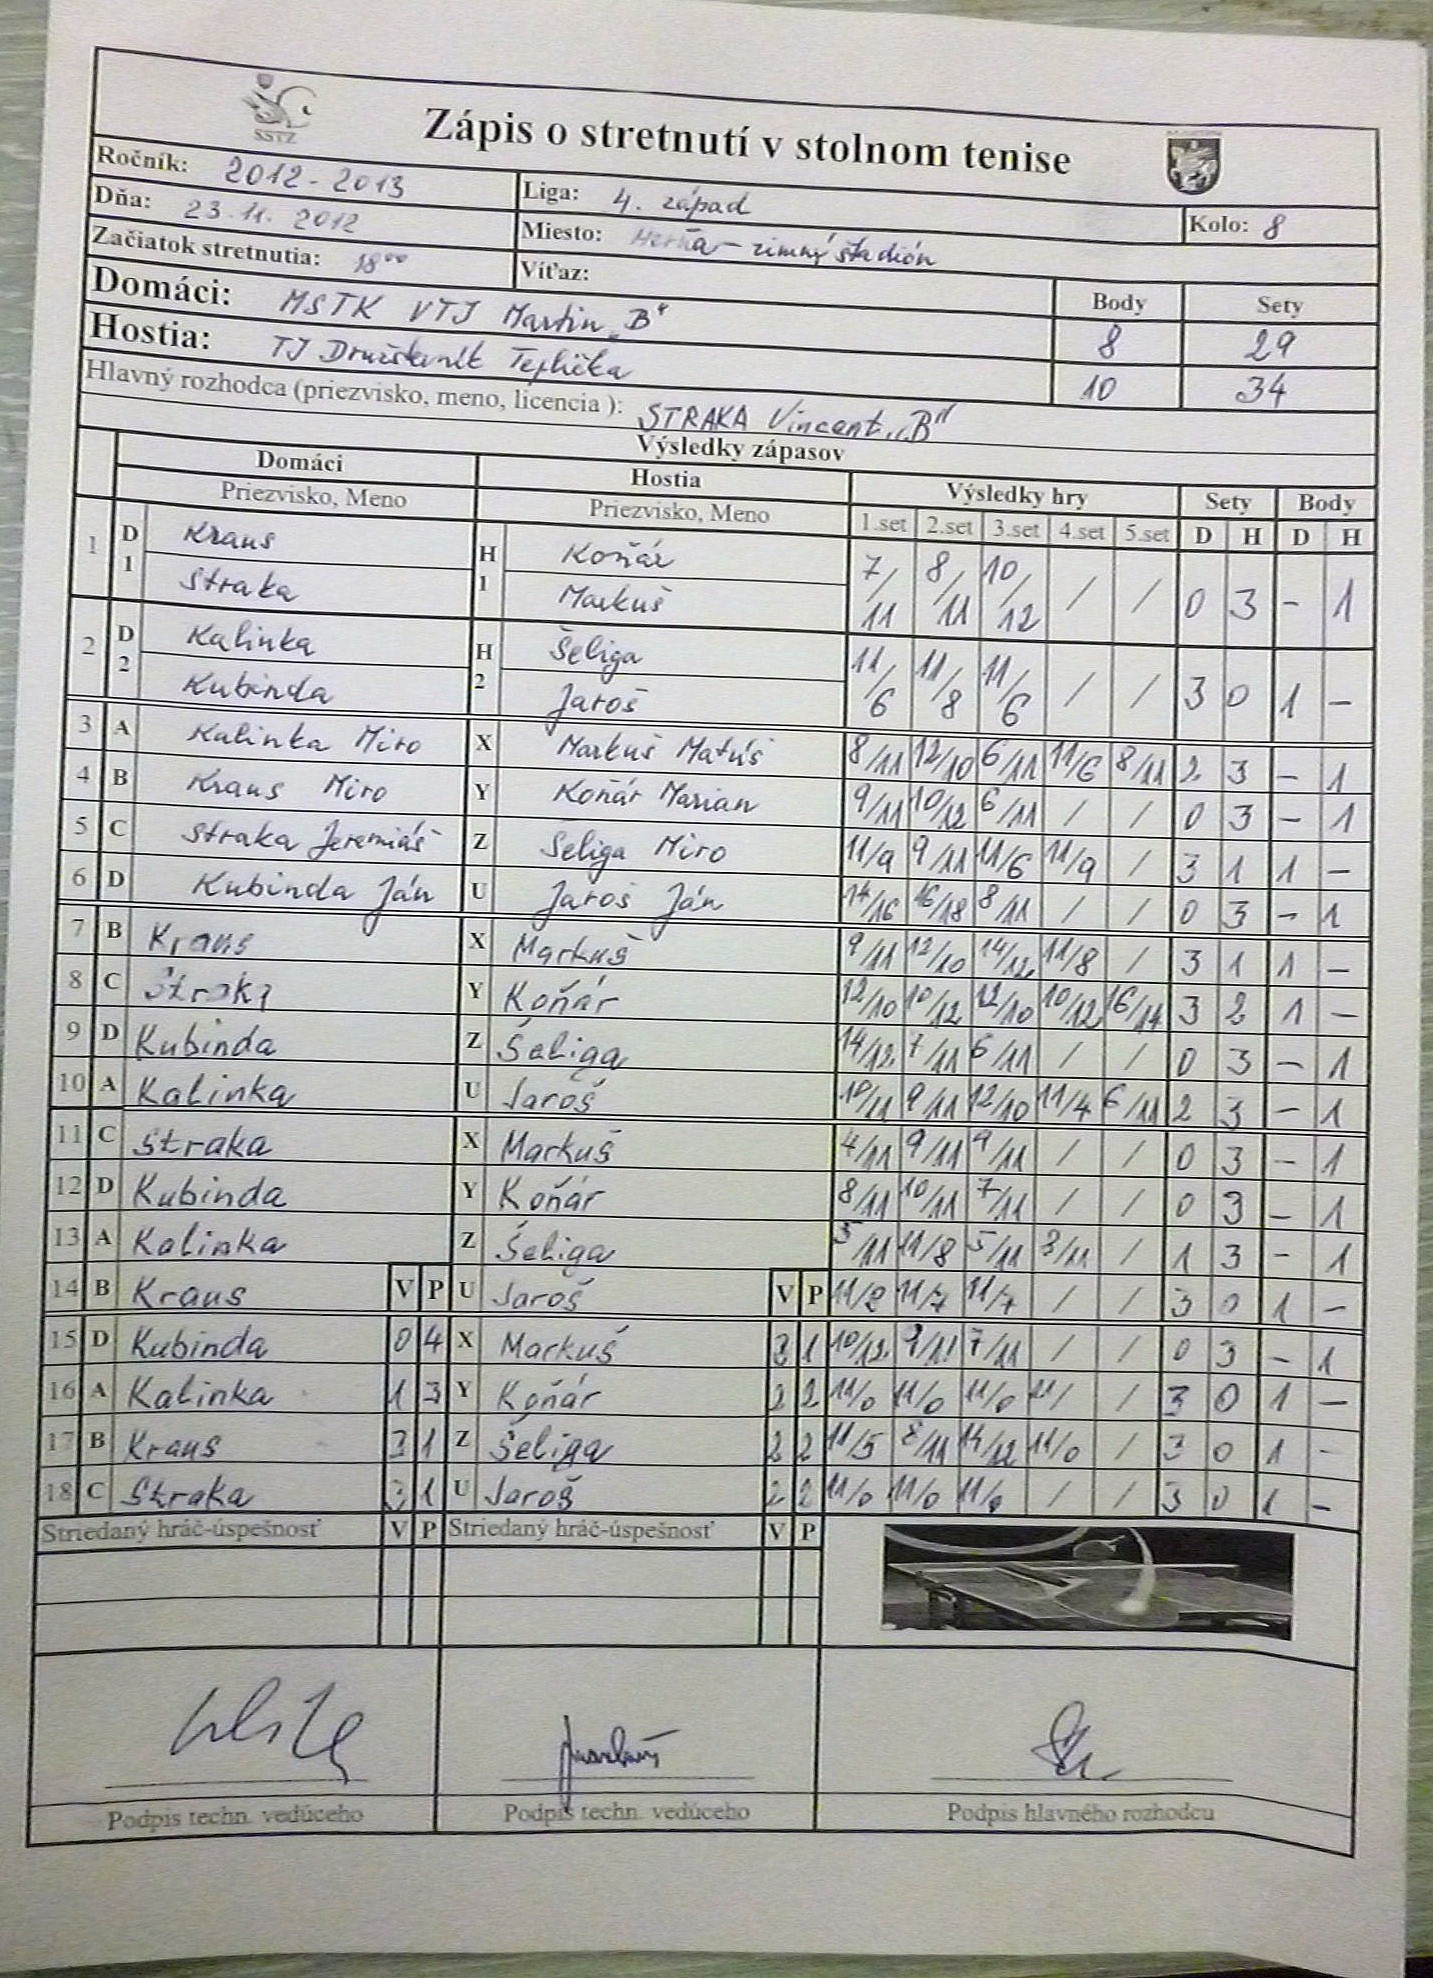 SSTZ
Zápis o stretnutí v stolnom tenise
Ročník: 2012-2013 Liga: 4. západ Kolo: 8
Dňa: 23.11.2012 Miesto: Herňa - zimný štadión
Začiatok stretnutia: 18⁰⁰ Víťaz: Body Sety
Domáci: MSTK VTJ Martin „B" 8 29
Hostia: TJ Družstevník Teplička 10 34
Hlavný rozhodca (priezvisko, meno, licencia ): STRAKA Vincent „B"
Výsledky zápasov
Domáci Hostia Výsledky hry Sety Body
Priezvisko, Meno Priezvisko, Meno 1.set 2.set 3.set 4.set 5.set D H D H
1 D1 Kraus H1 Koňár 7/11 8/11 10/12 / / 0 3 - 1
Straka Markuš
2 D2 Kalinka H2 Šeliga 11/6 11/8 11/6 / / 3 0 1 -
Kubinda Jaroš
3 A Kalinka Miro X Markuš Matúš 8/11 12/10 6/11 11/6 8/11 2 3 - 1
4 B Kraus Miro Y Koňár Marian 9/11 10/12 6/11 / / 0 3 - 1
5 C Straka Jeremiáš Z Šeliga Miro 11/9 9/11 11/6 11/9 / 3 1 1 -
6 D Kubinda Ján U Jaroš Ján 14/16 16/18 8/11 / / 0 3 - 1
7 B Kraus X Markuš 9/11 12/10 14/12 11/8 / 3 1 1 -
8 C Straka Y Koňár 12/10 10/12 12/10 10/12 16/14 3 2 1 -
9 D Kubinda Z Šeliga 14/12 7/11 6/11 / / 0 3 - 1
10 A Kalinka U Jaroš 10/11 9/11 12/10 11/4 6/11 2 3 - 1
11 C Straka X Markuš 4/11 9/11 9/11 / / 0 3 - 1
12 D Kubinda Y Koňár 8/11 10/11 7/11 / / 0 3 - 1
13 A Kalinka Z Šeliga 5/11 11/8 5/11 3/11 / 1 3 - 1
14 B Kraus V P U Jaroš V P 11/8 11/7 11/7 / / 3 0 1 -
15 D Kubinda 0 4 X Markuš 3 1 10/12 9/11 7/11 / / 0 3 - 1
16 A Kalinka 1 3 Y Koňár 2 2 11/0 11/0 11/0 / 3 0 1 -
17 B Kraus 3 1 Z Šeliga 2 2 11/5 8/11 14/12 11/0 / 3 0 1 -
18 C Straka 3 1 U Jaroš 2 2 11/0 11/0 11/0 / / 3 0 1 -
Striedaný hráč-úspešnosť V P Striedaný hráč-úspešnosť V P
Podpis techn. vedúceho Podpis techn. vedúceho Podpis hlavného rozhodcu